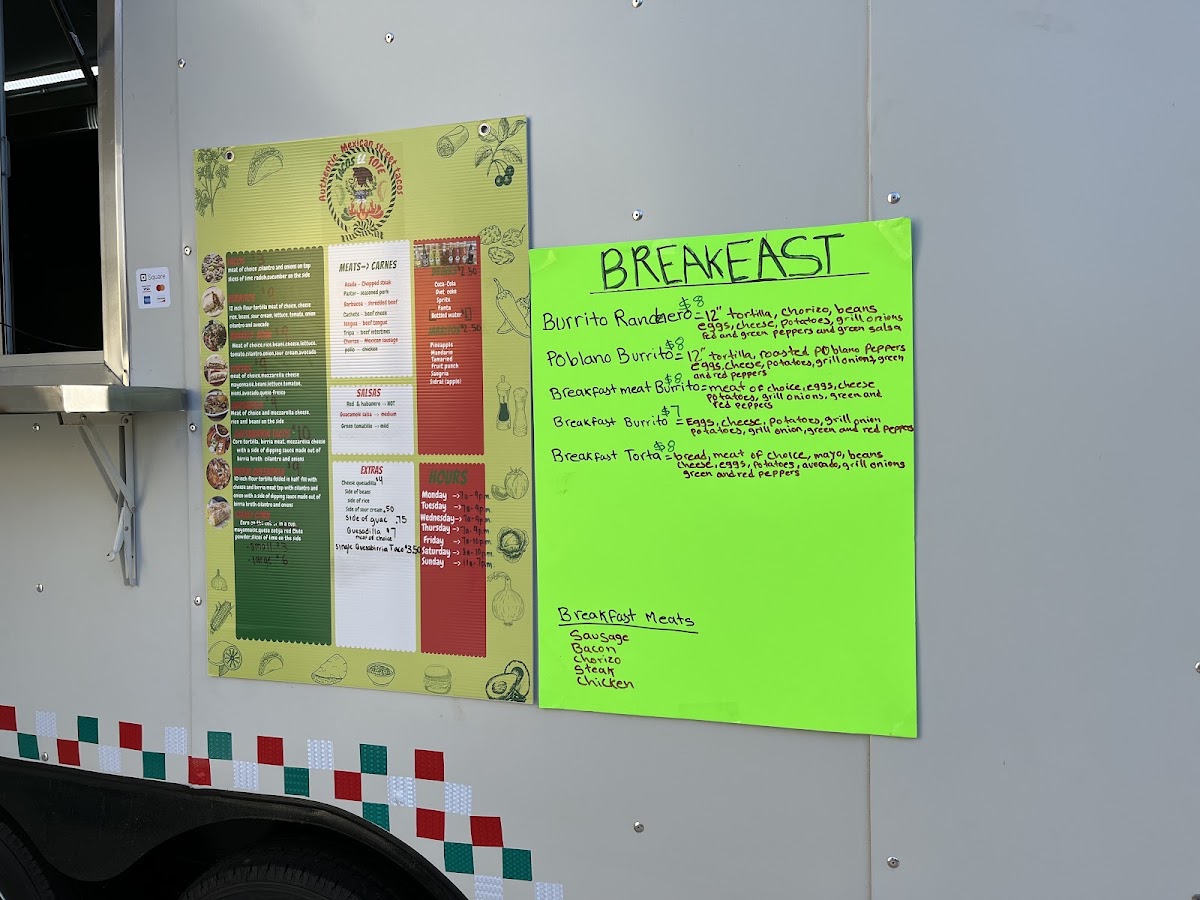 Square
VISA
Authentic Mexican street tacos
TACOS EL TOTE
meat of choice, cilantro and onions on top
slices of lime radish, cucumber on the side
12 inch flour tortilla meat of choice, cheese
rice, beans, sour cream, lettuce, tomato, onion
cilantro and avocado
meat of choice, rice, beans, cheese, lettuce,
tomato, cilantro, onion, sour cream, avocado
meat of choice, mozzarella cheese
mayonnaise, beans, lettuce, tomatoe,
onions, avocado, queso fresco
Meat of choice and mozzarella cheese,
rice and beans on the side
Corn tortilla, birria meat, mozzarella cheese
with a side of dipping sauce made out of
birria broth cilantro and onions
10 inch flour tortilla folded in half fill with
cheese and birria meat top with cilantro and
onion with a side of dipping sauce made out of
birria broth cilantro and onions
Corn on the cob or in a cup,
mayonnaise, queso cotija red Chile
powder, slices of lime on the side
-small $3
-large $6
MEATS-> CARNES
Asada - Chopped steak
Pastor - seasoned pork
Barbacoa - shredded beef
Cachete - beef cheek
lengua - beef tongue
Tripa - beef intestines
Chorizo - Mexican sausage
pollo - chicken
SALSAS
Red & habanero -> HOT
Guacamole salsa -> medium
Green tomatillo -> mild
EXTRAS
Cheese quesadilla $4
Side of beans
side of rice
Side of sour cream .50
Side of guac .75
Quesadilla $7
meat of choice
single Quesabirria Taco $3.50
$2.50
Coca-Cola
Diet coke
Sprite
Fanta
Bottled water
2.50
Pineapple
Mandarin
Tamarind
Fruit punch
Sangria
Sidral (apple)
HOURS
Monday -> 7a-9p.m.
Tuesday -> 7a-9p.m.
Wednesday-> 7a-9p.m.
Thursday -> 7a-9p.m.
Friday -> 7a-10p.m.
Saturday -> 8a-10p.m.
Sunday -> 11a-7p.m.
BREAKFAST
Burrito Ranchero $8 = 12" tortilla, chorizo, beans
eggs, cheese, potatoes, grill onions
red and green peppers and green salsa
Poblano Burrito $8 = 12" tortilla, roasted Poblano Peppers
eggs, cheese, potatoes, grill onions, green
and red peppers
Breakfast meat Burrito $8 = meat of choice, eggs, cheese
potatoes, grill onions, green and
red peppers
Breakfast Burrito $7 = Eggs, cheese, potatoes, grill onion
potatoes, grill onion, green and red peppers
Breakfast Torta $8 = bread, meat of choice, mayo, beans
cheese, eggs, potatoes, avocado, grill onions
green and red peppers
Breakfast Meats
Sausage
Bacon
Chorizo
Steak
Chicken